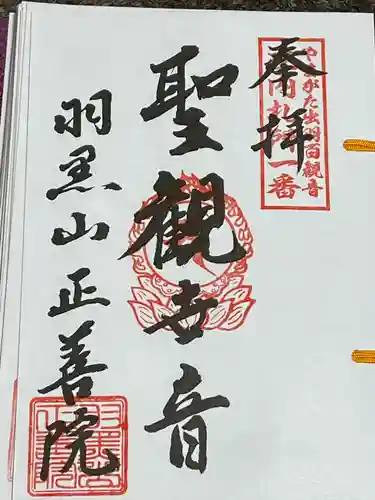 奉拝
やまがた出羽百観音
聖観世音
羽黒山正善院